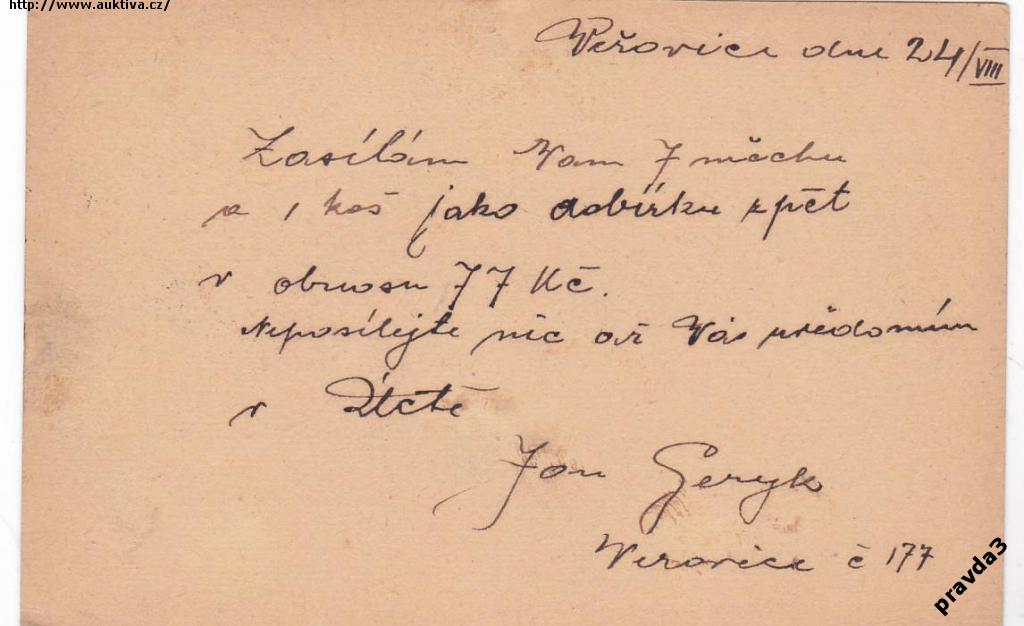 http://www.auktiva.cz/
Veřovice dne 24/VIII
Zasílám Vam 7 měchu
a 1 koš jako dobírku zpět
v obnosu 77 Kč.
Neposílejte nic až Vás uvědomím
v
Jan Geryk
Verovice č 177
pravda3